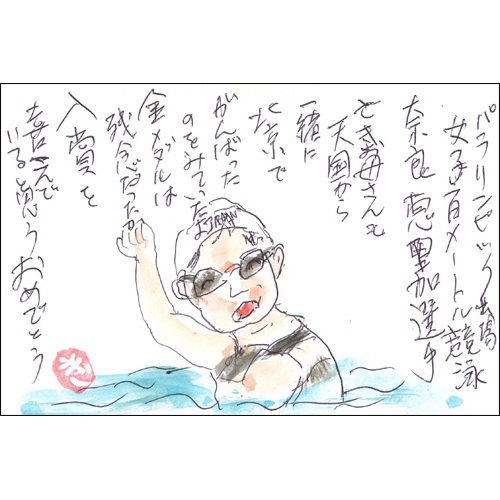 パラリンピック出場
女子百メートル競泳
奈良恵里加選手
とき お母さんも
天国から
一緒に
北京で
がんばった
のをみていた
金メダルは
残念だったが
入賞を
喜んで
いると思うおめでとう
JAPAN